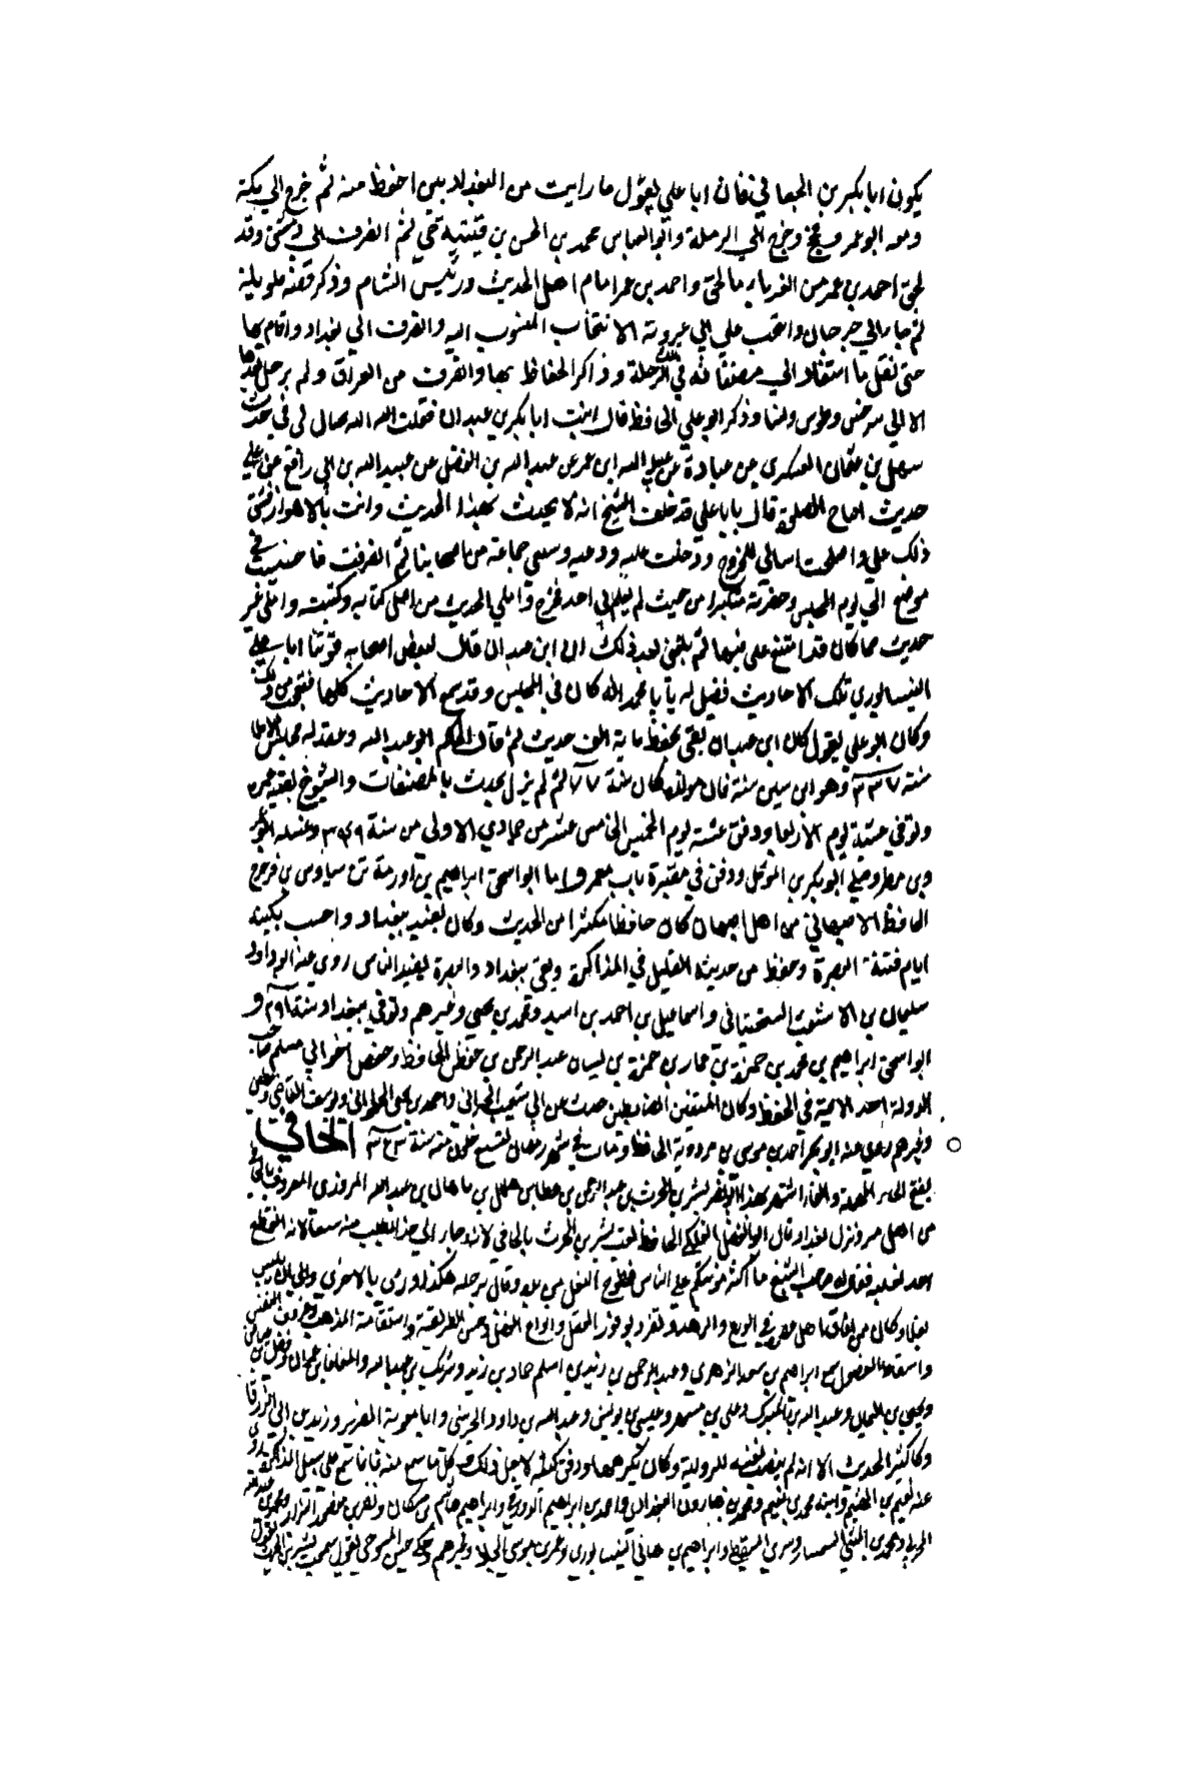 يكون ابا بكر بن الجعابي فان ابا علي يقول ما رايت من البغداديين احفظ منه ثم خرج الي مكة
ومعه ابو عمرو وحج وخرج الي الرملة وابو العباس محمد بن الحسن بن قتيبة حي ثم انصرف الي دمشق وقد
احمد بن عمير من واحمد بن عمير امام اهل الحديث ورئيس الشام وذكر قصة طويلة
ثم جاء الي جرجان وانتخب علي الي عروبة الانتخاب المنسوب اليه وانصرف الي بغداد واقام بها
حتي نقل ما استفاد الي مصنفاته في تلك الرحلة وذاكر الحفاظ بها وانصرف من العراق ولم يرحل بعدها
الا الي سرخس وطوس ونسا وذكر ابو علي الحافظ قال اتيت ابا بكر بن عبدان فقلت الله الله تحتال لي في حديث
سهل بن عثمان العسكري عن جنادة عن عبيد الله ابن عمر عن عبد الله بن الفضل عن عبيد الله بن ابي رافع عن علي
حديث افتتاح الصلوة قال يابا علي قد حلف الشيخ انه لا يحدث بهذا الحديث وانت بالاهواز فشق
ذلك علي واصلحت اسبابي للخروج ودخلت عليه وودعته وشيعني جماعة من اصحابنا ثم انصرفت فاختفيت في
موضع الي يوم المجلس وحضرته متنكرا من حيث لم يعلم بي احد فخرج واملي الحديث من اصل كتابه وكتبته واملي غير
حديث مما كان قد امتنع علي فيها ثم بلغني بعد ذلك ان ابن عبدان قال لبعض اصحابه فوتنا ابا علي
النيسابوري تلك الاحاديث فقيل له يابا محمد انه كان في المجلس وقد سمع الاحاديث كلها فتعجب من ذلك
وكان ابو علي يقول كان ابن عبدان يفي بحفظ ماية الف حديث ثم قال الحاكم ابو عبد الله وعقد له مجلس الاملا
سنة ٣٣٧ وهو ابن ستين سنة فان مولده كان سنة ٢٧٧ ثم لم يزل يحدث بالمصنفات والشيوخ بقية عمره
وتوفي عشية يوم الاربعا ودفن عشية يوم الخميس الخامس عشر من جمادي الاولي من سنة ٣٤٩ وغسله ابو عمرو
بن مطر وصلي ابو بكر بن المؤمل ودفن في مقبرة باب معمر واما ابو اسحق ابراهيم بن اورمة بن سياوس بن فروخ
الحافظ الاصبهاني من اهل اصبهان كان حافظا مكثرا من الحديث وكان يفيد ببغداد
ايام فتنة البصرة وحفظ من حديثه القليل في المذاكرة وبقي ببغداد والبصرة يفيد الناس روي عنه ابو داود
سليمان بن الاشعث السجستاني واسماعيل بن احمد بن اسيد ومحمد بن يحيي وغيرهم وتوفي ببغداد سنة
ابو اسحق ابراهيم بن محمد بن حمزة بن عمارة بن حمزة بن يسار بن عبد الرحمن بن حفص الحافظ وحفص اخو ابي مسلم صاحب
الدولة احد الايمة في الحفظ وكان المتقنين الضابطين حدث عن ابي شعيب الحراني واحمد بن يحيي الحلواني ويوسف القاضي
وغيرهم روي عنه ابو بكر احمد بن موسي بن مردويه الحافظ ومات في شهر رمضان لتسع خلون منه سنة ٣٥٣ الحافي
بفتح الحاء المهملة والفاء اشتهر بهذا ابو نصر بشر بن الحرث بن عبد الرحمن بن عطا بن هلال بن ماهان بن عبد الله المروزي المعروف بالحافي
من اهل مرو نزل بغداد وقال ابو الفضل الفلكي الحافظ لقب بشر بن الحرث بالحافي لانه جاء الي حذاء يطلب منه شسعا لانه انقطع
احد نعليه فقال له صاحب الشسع ما اكثر مؤنتكم علي الناس فطرح النعل من يده وقال برجله هكذا ورمي بالاخري والي ان لا يلبس
نعلا وكان ممن فاق اهل عصره في الورع والزهد وتفرد بوفور العقل وانواع الفضل وحسن الطريقة واستقامة المذهب وعزوف النفس
واسقاط الفضول سمع ابراهيم بن سعد الزهري وعبد الرحمن بن زيد بن اسلم وحماد بن زيد وشريك بن عبد الله والمعافا بن عمران وفضيل بن عياض
ويحيي بن اليمان وعبد الله بن المبارك وعلي بن مسهر وعيسي بن يونس وعبد الله بن داود الخريبي وابا معوية الضرير وزيد بن ابي الزرقا
وكان كثير الحديث الا انه لم ينصب نفسه للرواية وكان يكرهها ودفن كتبه لاجل ذلك وكل ما سمع منه فانما سمع علي سبيل المذاكرة روي
عنه نعيم بن الهيصم وابنه محمد بن نعيم ومحمد بن هارون البغدادي واحمد بن ابراهيم الدورقي وابراهيم بن هاشم بن مشكان ونصر بن منصور البزاز ومحمد بن
الحربي ومحمد بن المثني السمسار وسري السقطي وابراهيم بن هاني النيسابوري وعمر بن موسي الجلا وغيرهم وحكي حسن المسوحي يقول سمعت بشر بن الحرث يقول